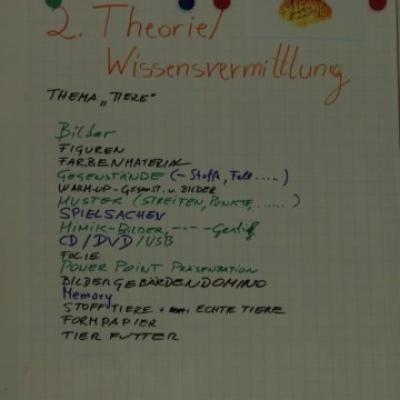 2. Theorie/
Wissensvermittlung
THEMA „TIERE"
Bilder
FIGUREN
FARBENMATERIAL
GEGENSTÄNDE (- Stoffe, Fell.....)
WARM-UP - Gegenst. u. BILDER
MUSTER (STREIFEN, PUNKTE, ......)
SPIELSACHEN
MIMIK-BILDER, ---- Gestik
CD/DVD/USB
FOLIE
POWER POINT PRÄSENTATION
BILDERGEBÄRDENDOMINO
Memory
STOFFTIERE + ECHTE TIERE
FORMPAPIER
TIER FUTTER